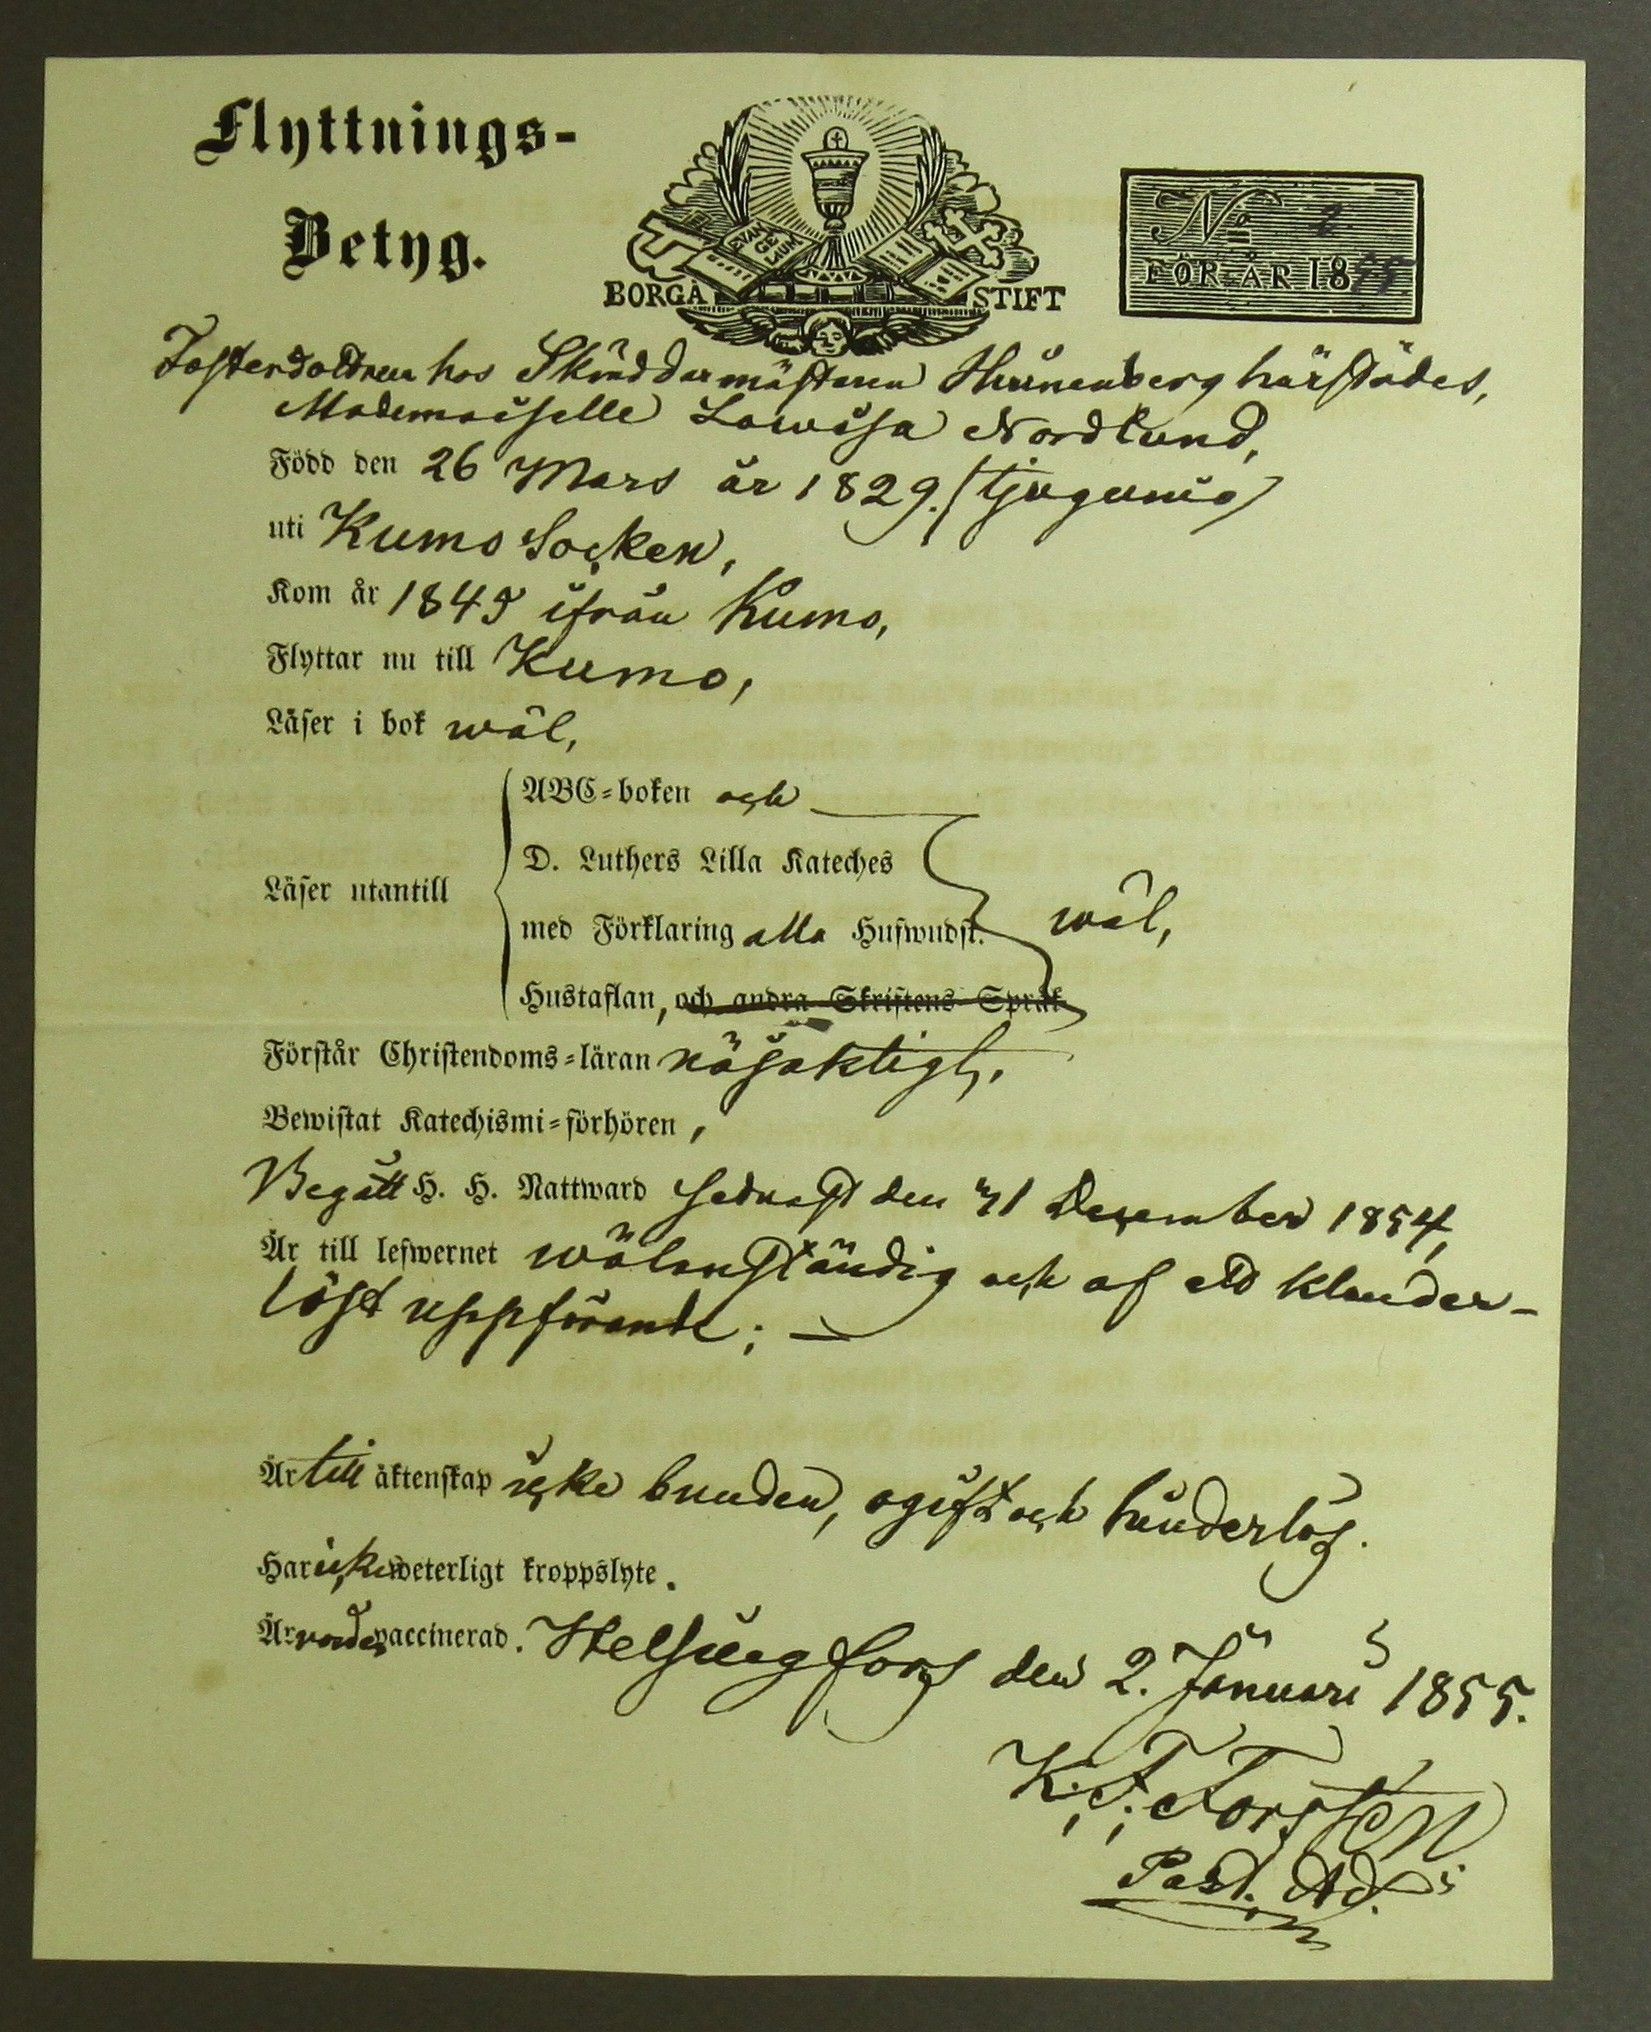 Flyttnings-
Betyg.
EVAN
GE
LIUM
BORGÅ STIFT
No 2
FÖR ÅR 1855
Fosterdottren hos Skräddaremästaren härstädes,
Mademoiselle Lowisa Nordlund,
Född den 26 Mars år 1829. (tjugunio)
uti Kumo Socken,
Kom år 1845 ifrån Kumo,
Flyttar nu till Kumo,
Läser i bok wäl,
ABC-boken och
D. Luthers Lilla Kateches
Läser utantill
med Förklaring alla Hufwudst. wäl,
Hustaflan, och andra Skriftens Språk
Förstår Christendoms-läran nöjaktigt,
Bewistat Katechismi-förhören,
Begått H. H. Nattward sednast den 31 December 1854,
Är till lefwernet wälanständig och af ett klander-
löst uppförande; —
Är till äktenskap icke bunden, ogift och hinderlös.
Har icke weterligt kroppslyte.
Är vaccinerad. Helsingfors den 2. Januari 1855.
K. F. Forssten
Past. Adj.